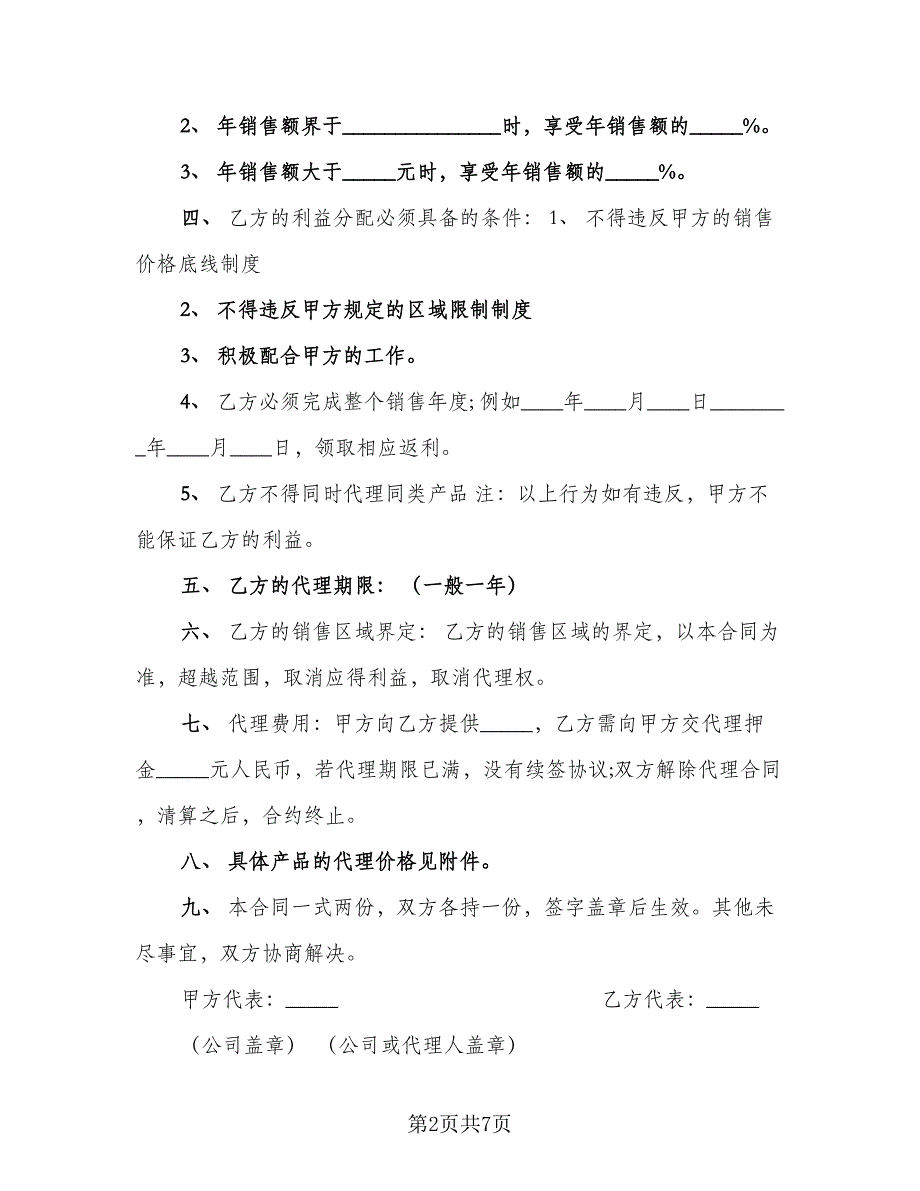 2、 年销售额界于_______________时，享受年销售额的_____%。
3、 年销售额大于_____元时，享受年销售额的_____%。
四、 乙方的利益分配必须具备的条件： 1、 不得违反甲方的销售
价格底线制度
2、 不得违反甲方规定的区域限制制度
3、 积极配合甲方的工作。
4、 乙方必须完成整个销售年度;例如____年____月____日_______
_年____月____日，领取相应返利。
5、 乙方不得同时代理同类产品 注：以上行为如有违反，甲方不
能保证乙方的利益。
五、 乙方的代理期限： （一般一年）
六、 乙方的销售区域界定： 乙方的销售区域的界定，以本合同为
准，超越范围，取消应得利益，取消代理权。
七、 代理费用：甲方向乙方提供_____，乙方需向甲方交代理押
金_____元人民币，若代理期限已满，没有续签协议;双方解除代理合同
，清算之后，合约终止。
八、 具体产品的代理价格见附件。
九、 本合同一式两份，双方各持一份，签字盖章后生效。其他未
尽事宜，双方协商解决。
甲方代表：_____ 乙方代表：_____
（公司盖章） （公司或代理人盖章）
第2页共7页